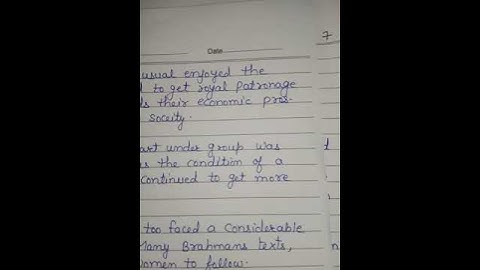 7
Date
usual enjoyed the
to get royal Patronage
their economic pros-
soceity.
under group was
the condition of a
continued to get more
too faced a considerable
Many Brahmans texts,
women to follow.